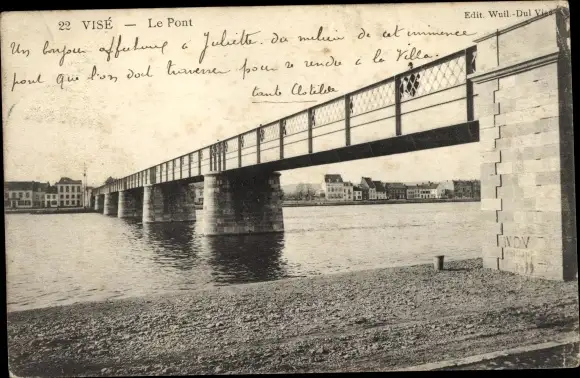 22 VISÉ — Le Pont
Edit. Wuil.-Dul Visé
Un bonjour affectueux à Juliette. du milieu de cet immence
pont que l'on doit traverser pour se rendre à la Villa.
tante Clotilde